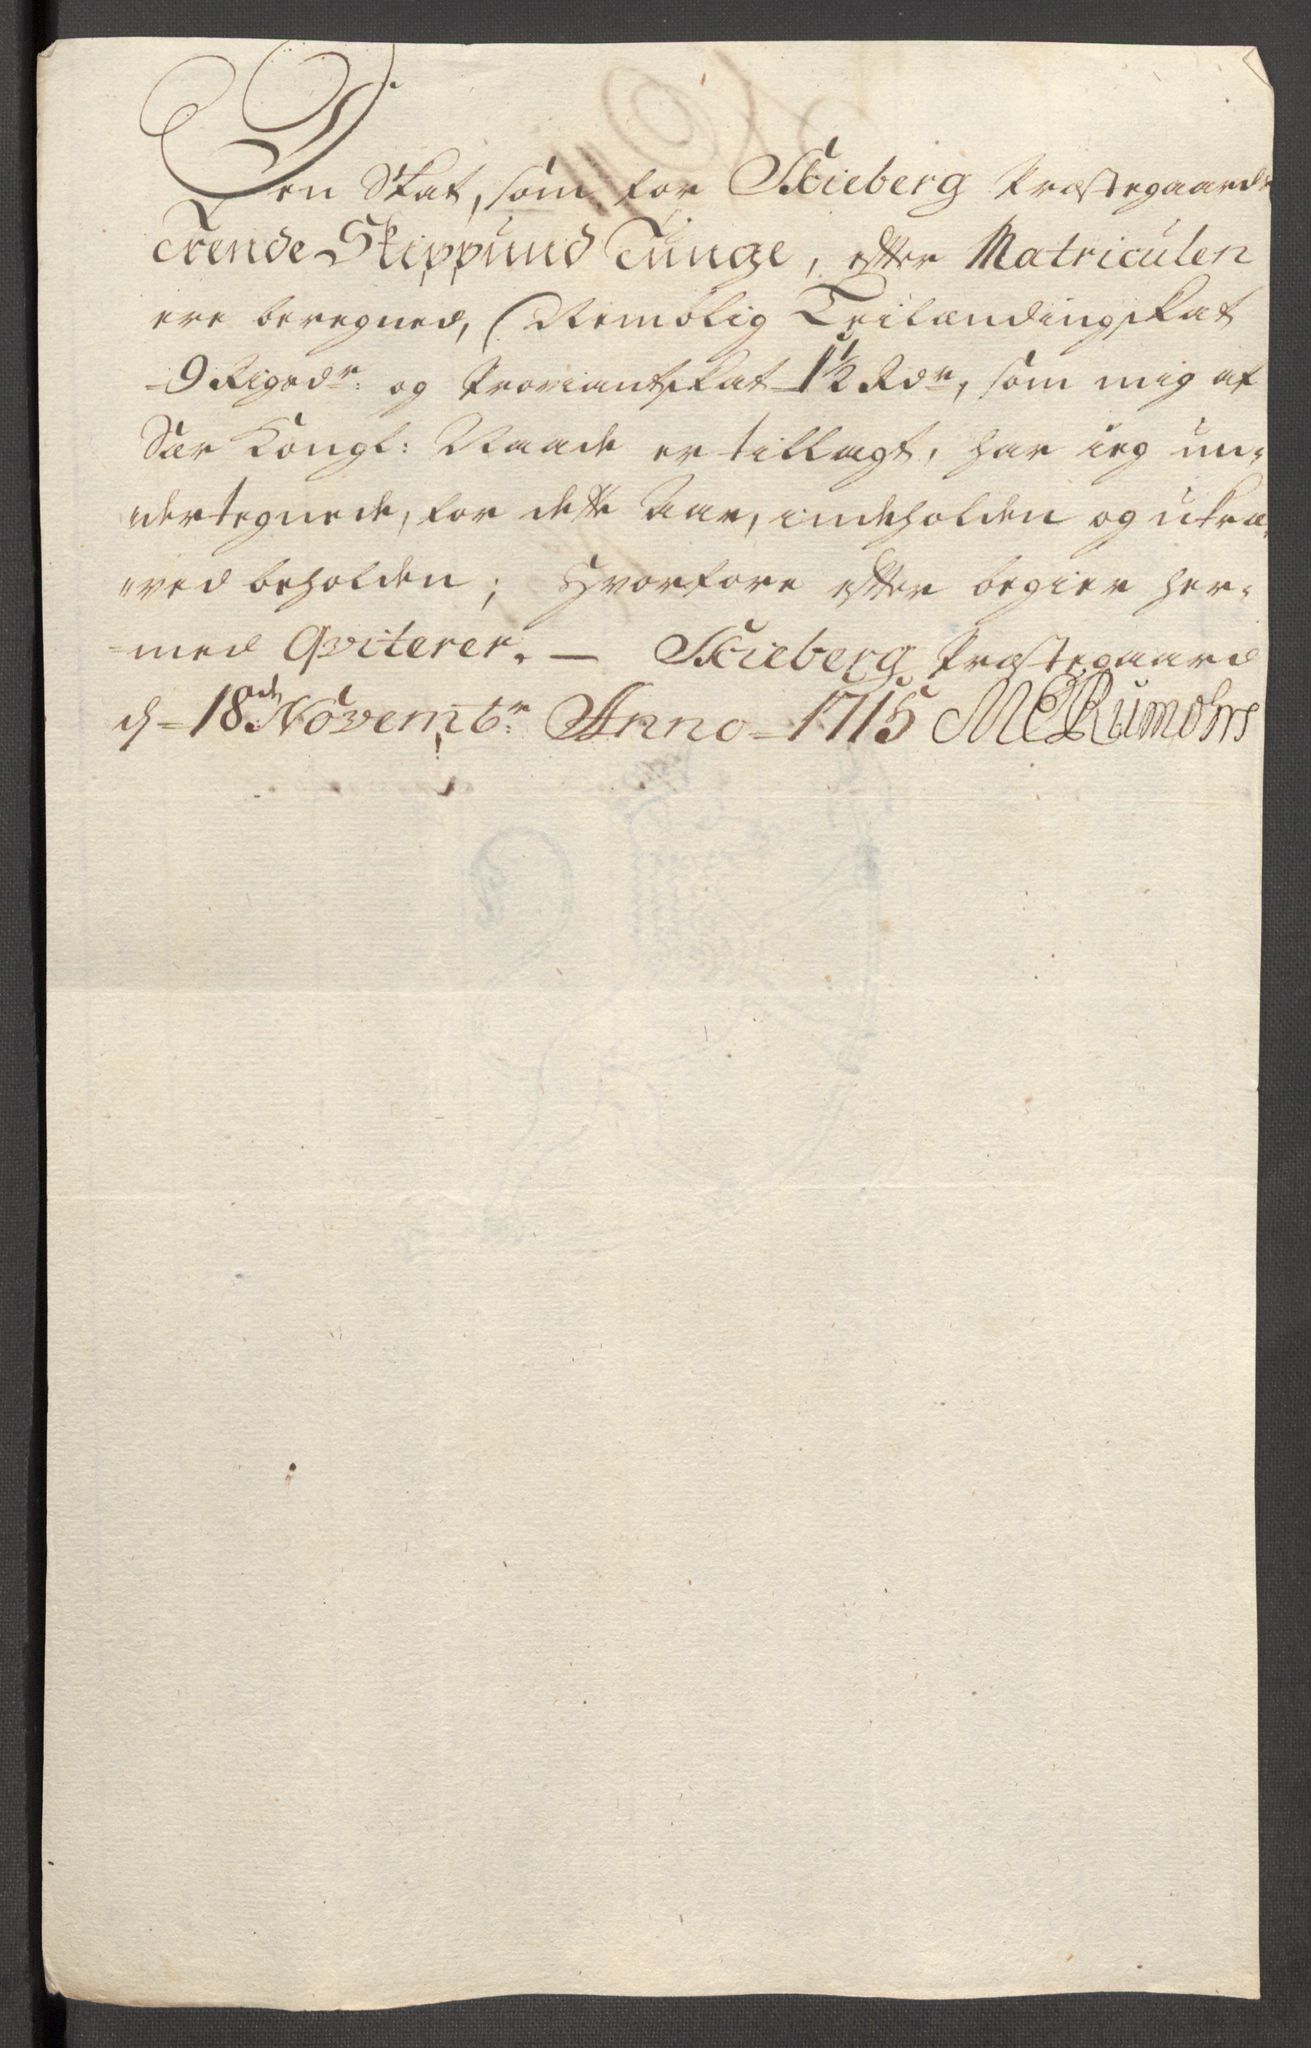 Den Skat, som for Skieberg Præstegaards
Trende Skippund Tunge, efter Matriculen
ere beregned, (Nemblig Leilændingskat
9 Rigsdr: og Proviantskat 1½ Rdr, som mig af
Kongl: Naade er tillagt, har ieg un-
dertegnede, for dette Aar, indeholden og ukræ-
ved beholden; Hvorfore efter begier her-
med Qviterer. — Skieberg Præstegaard
d= 18de Novembr: Anno 1715 MCRumohrs